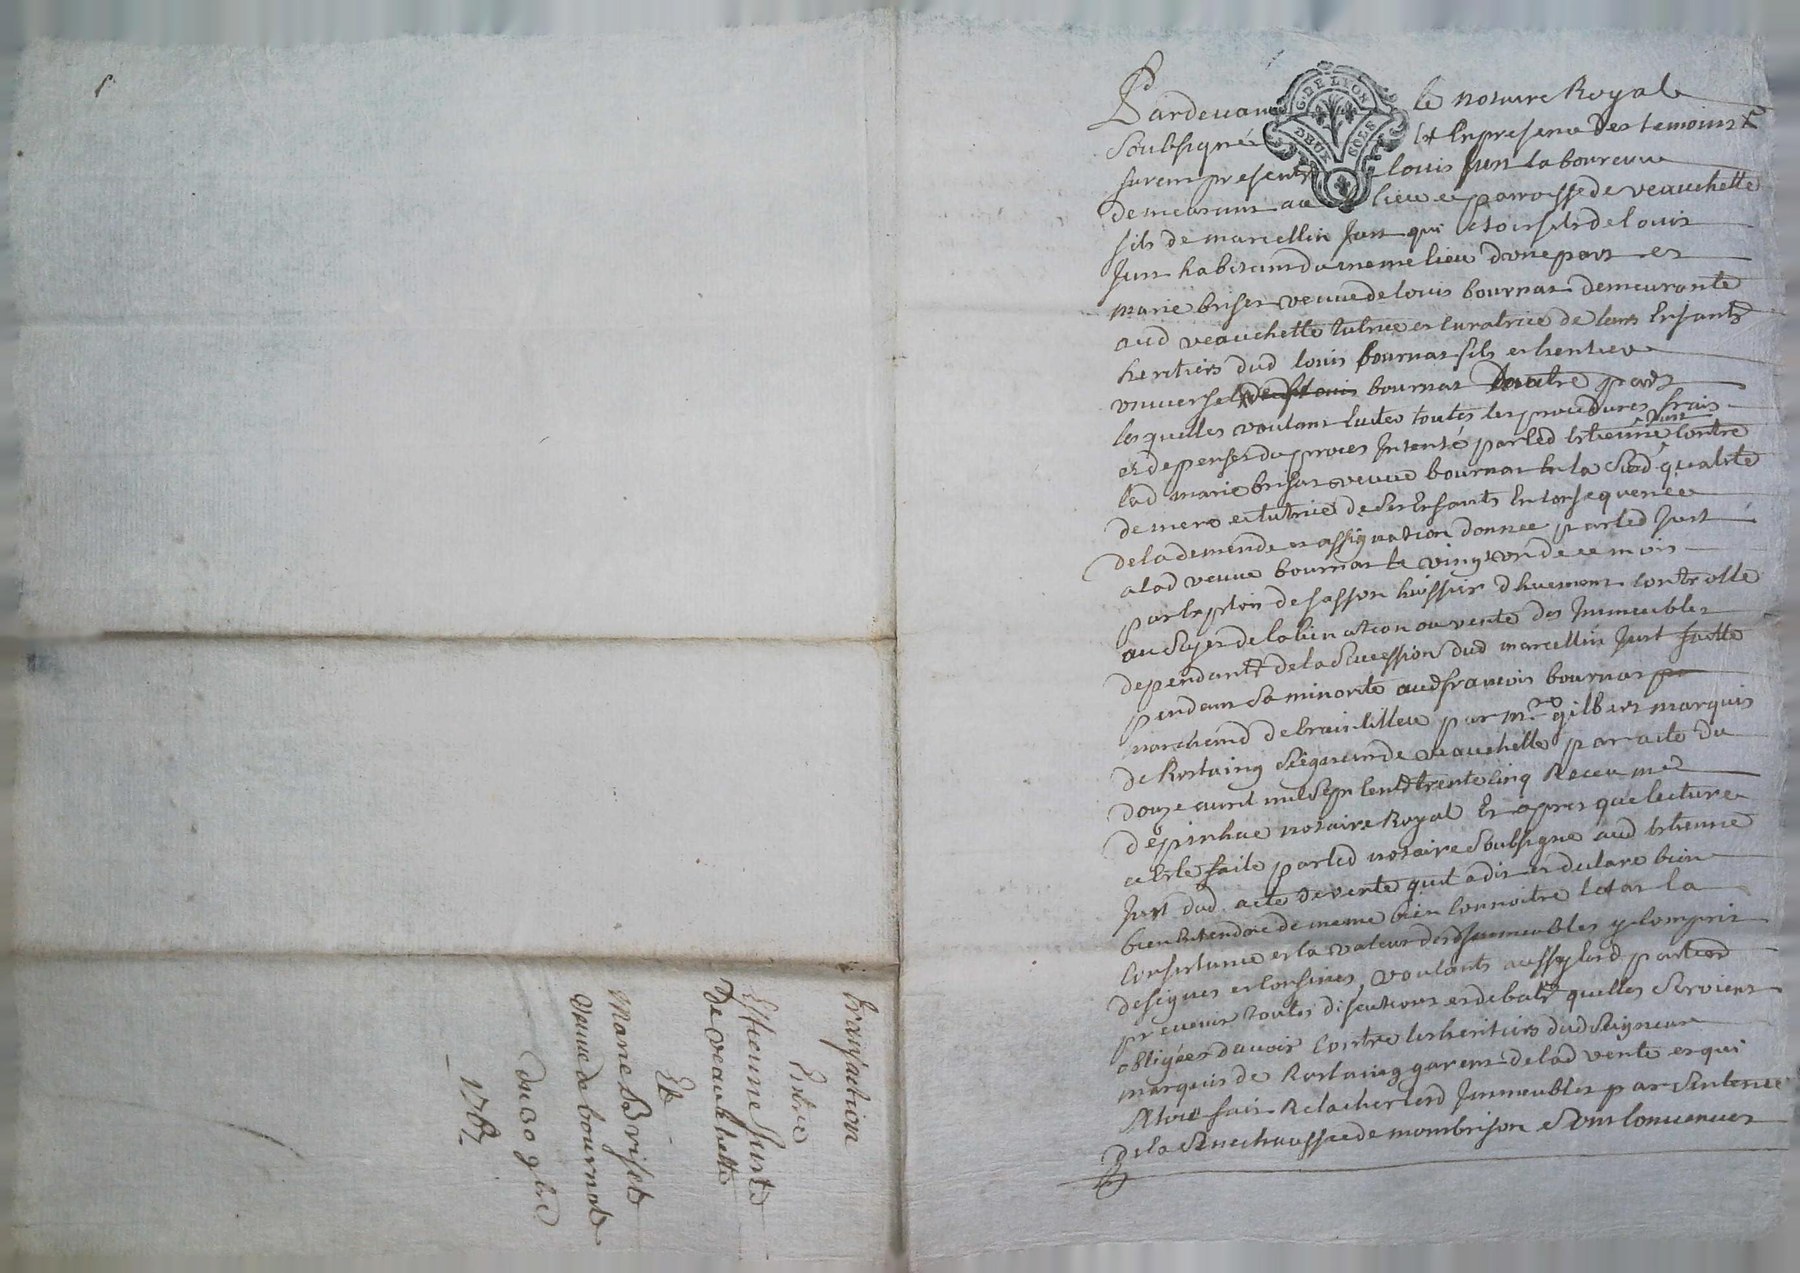 Pardevant le notaire Royal
Soubsigné Et En presence Des temoins
furent presents louis Just laboureur
demeurant au lieu et parroisse de veauchette
fils de marcellin Just qui etoit fils de louis
Just habitant du meme lieu d'une part et
marie briset veuve de louis bournat demeurante
aud veauchette tutrice et curatrice de leurs Enfants
heritiers dud louis bournat fils et heritier
universel bournat D'autre part
lesquelles voulant Eviter toutes les procedures frais
et depenses du proces Intenté par led Etienne Just contre
lad marie briset veuve bournat En la Susd qualité
de mere et tutrice de Ses Enfants En consequence
de la demende et assignation donnee par led Just
a lad veuve bournat le vingt un de ce mois
par Exploit de sasson huissier d'huement controllé
au Sujet de l'alienation ou vente des Immeubles
dependants de la Succession dud marcellin Just faitte
pendant Sa minorité aud francois bournat
marchand de par mre gilbert marquis
de Rostaing Seigneur de veauchette par acte du
douze avril mil Sept Cent trente cinq Receu me
Depinhac notaire Royal Et apres que lecture
a Eté faite par led notaire Soubsigné aud Etienne
Just dud acte de vente qu'il a dit et declaré bien
bien Entendre de meme bien Connoitre l'etat la
Consistance et la valeur desd Immeubles y Compris
designes et Confines, voulants aussy lesd parties
prevenir toutes discutions et debats quelles Seroient
obligées d'avoir Contre les heritiers dud Seigneur
marquis de Rostaing garent de lad vente et qui
fait Relacher lesd Immeubles par Sentence
de la Senechaussée de mombrison Sont Convenues
G. DE LYON
DEUX SOLS
Transaction
Entre
Etienne Just
De veauchette
Et
Marie Briset
veuve de bournat
du 30 9bre
1767